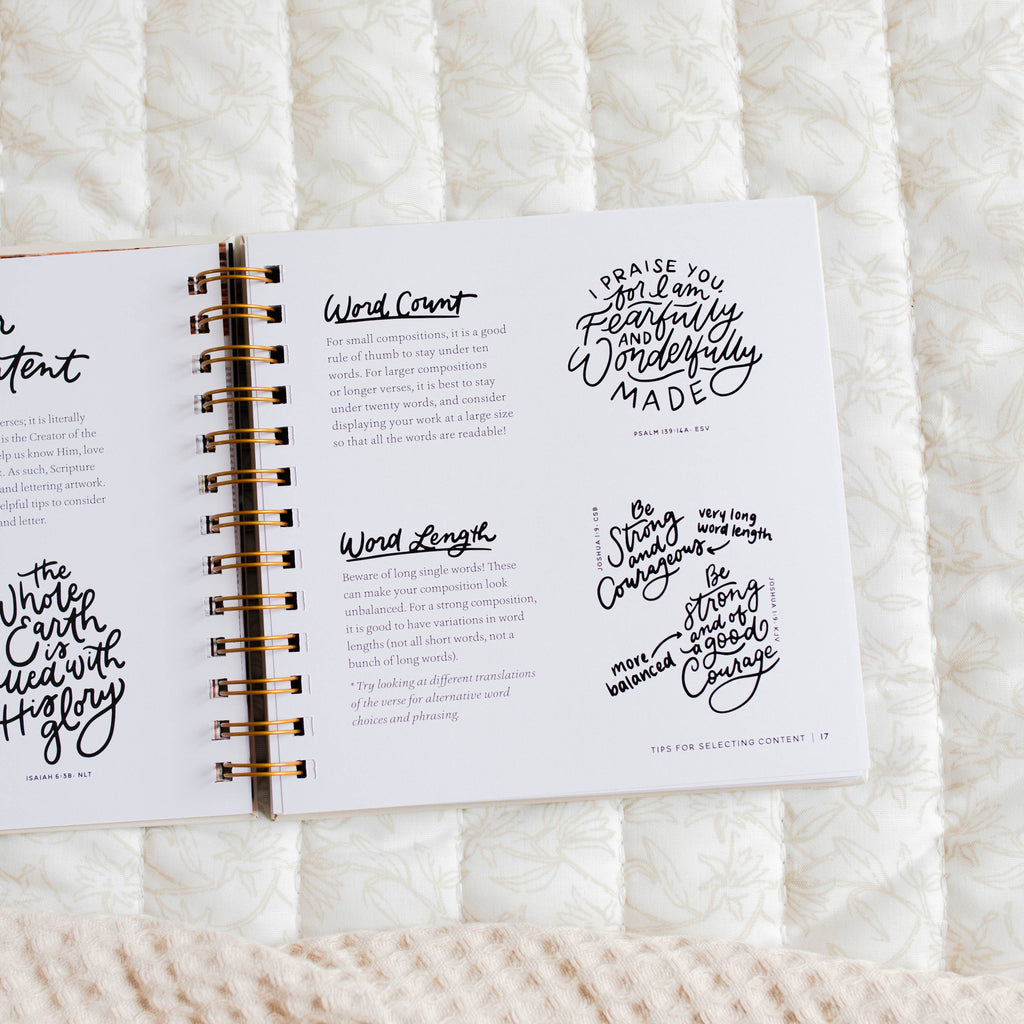 r
ntent
erses; it is literally
is the Creator of the
elp us know Him, love
. As such, Scripture
and lettering artwork.
elpful tips to consider
and letter.
the
Whole
Earth
is
lled with
His
glory
ISAIAH 6:3B, NLT
Word Count
For small compositions, it is a good
rule of thumb to stay under ten
words. For larger compositions
or longer verses, it is best to stay
under twenty words, and consider
displaying your work at a large size
so that all the words are readable!
I PRAISE YOU
for I am
Fearfully
AND
Wonderfully
MADE
PSALM 139:14A, ESV
Word Length
Beware of long single words! These
can make your composition look
unbalanced. For a strong composition,
it is good to have variations in word
lengths (not all short words, not a
bunch of long words).
* Try looking at different translations
of the verse for alternative word
choices and phrasing.
JOSHUA 1:9, CSB
Be
Strong
and
Courageous
very long
word length
Be
strong
and of
a good
Courage
JOSHUA 1:9, KJV
more
balanced
TIPS FOR SELECTING CONTENT | 17